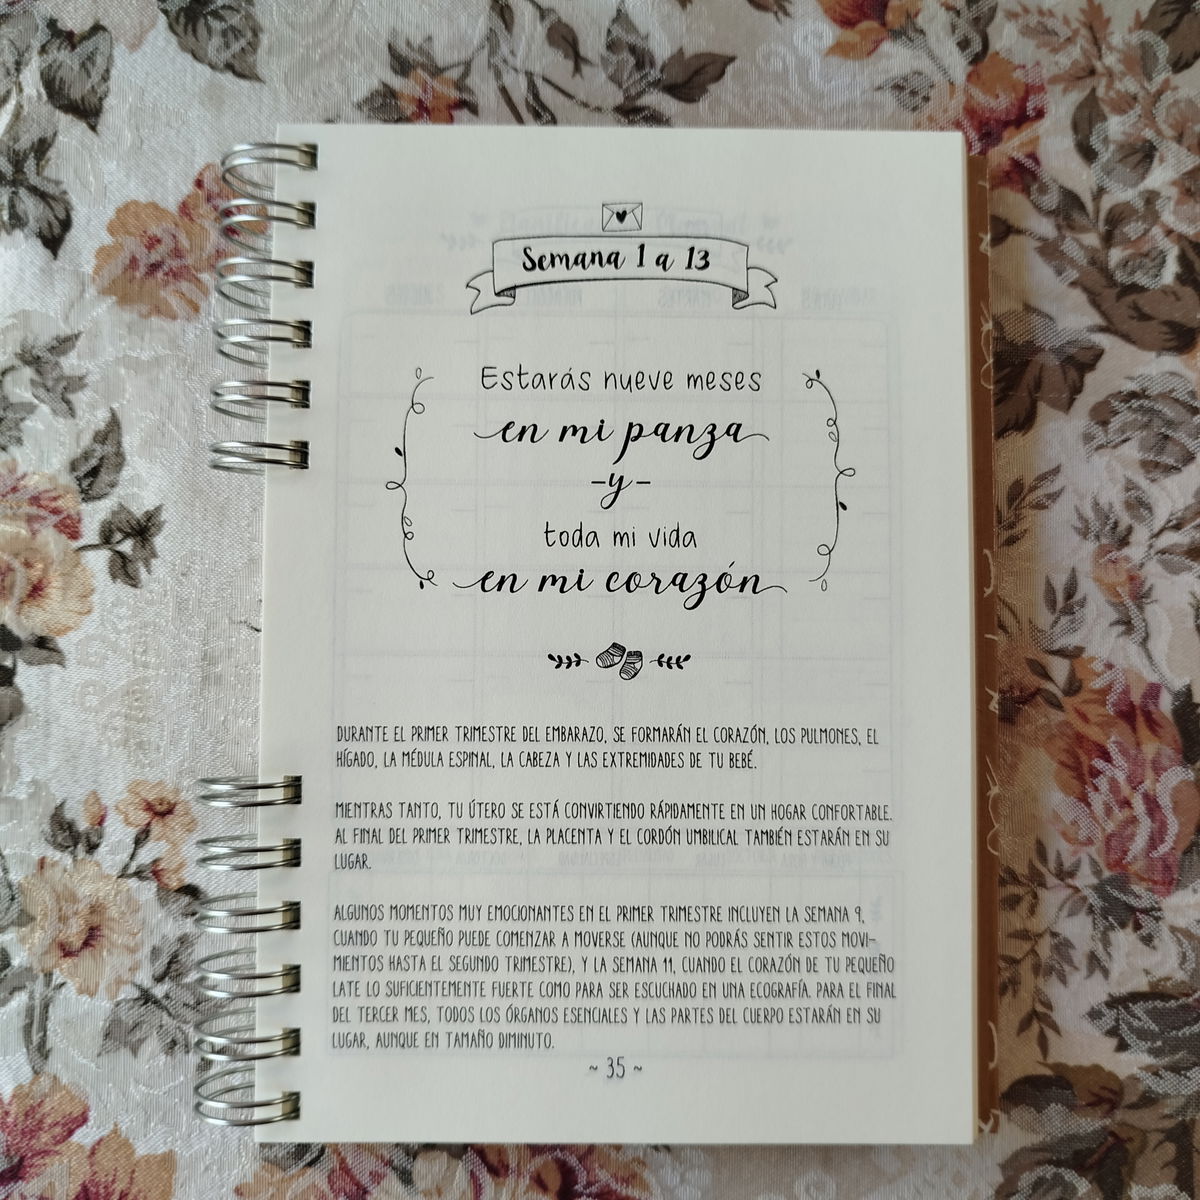 Semana 1 a 13
Estarás nueve meses
en mi panza
-y-
toda mi vida
en mi corazón
DURANTE EL PRIMER TRIMESTRE DEL EMBARAZO, SE FORMARÁN EL CORAZÓN, LOS PULMONES, EL
HÍGADO, LA MÉDULA ESPINAL, LA CABEZA Y LAS EXTREMIDADES DE TU BEBÉ.
MIENTRAS TANTO, TU ÚTERO SE ESTÁ CONVIRTIENDO RÁPIDAMENTE EN UN HOGAR CONFORTABLE.
AL FINAL DEL PRIMER TRIMESTRE, LA PLACENTA Y EL CORDÓN UMBILICAL TAMBIÉN ESTARÁN EN SU
LUGAR.
ALGUNOS MOMENTOS MUY EMOCIONANTES EN EL PRIMER TRIMESTRE INCLUYEN LA SEMANA 9,
CUANDO TU PEQUEÑO PUEDE COMENZAR A MOVERSE (AUNQUE NO PODRÁS SENTIR ESTOS MOVI-
MIENTOS HASTA EL SEGUNDO TRIMESTRE), Y LA SEMANA 11, CUANDO EL CORAZÓN DE TU PEQUEÑO
LATE LO SUFICIENTEMENTE FUERTE COMO PARA SER ESCUCHADO EN UNA ECOGRAFÍA. PARA EL FINAL
DEL TERCER MES, TODOS LOS ÓRGANOS ESENCIALES Y LAS PARTES DEL CUERPO ESTARÁN EN SU
LUGAR, AUNQUE EN TAMAÑO DIMINUTO.
~ 35 ~